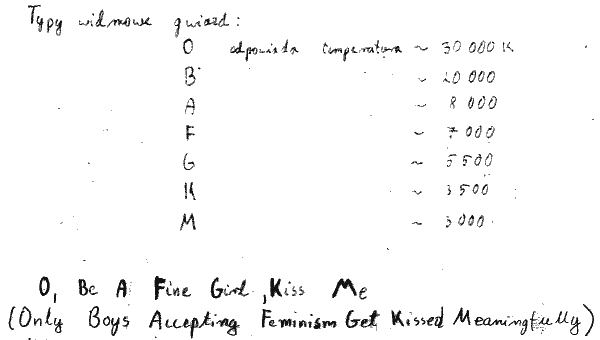 Typy widmowe gwiazd:
O odpowiada temperatura ~ 30 000 K
B ~ 20 000
A ~ 8 000
F ~ 7 000
G ~ 5 500
K ~ 3 500
M ~ 3 000
O, Be A Fine Girl, Kiss Me
(Only Boys Accepting Feminism Get Kissed Meaningfully)